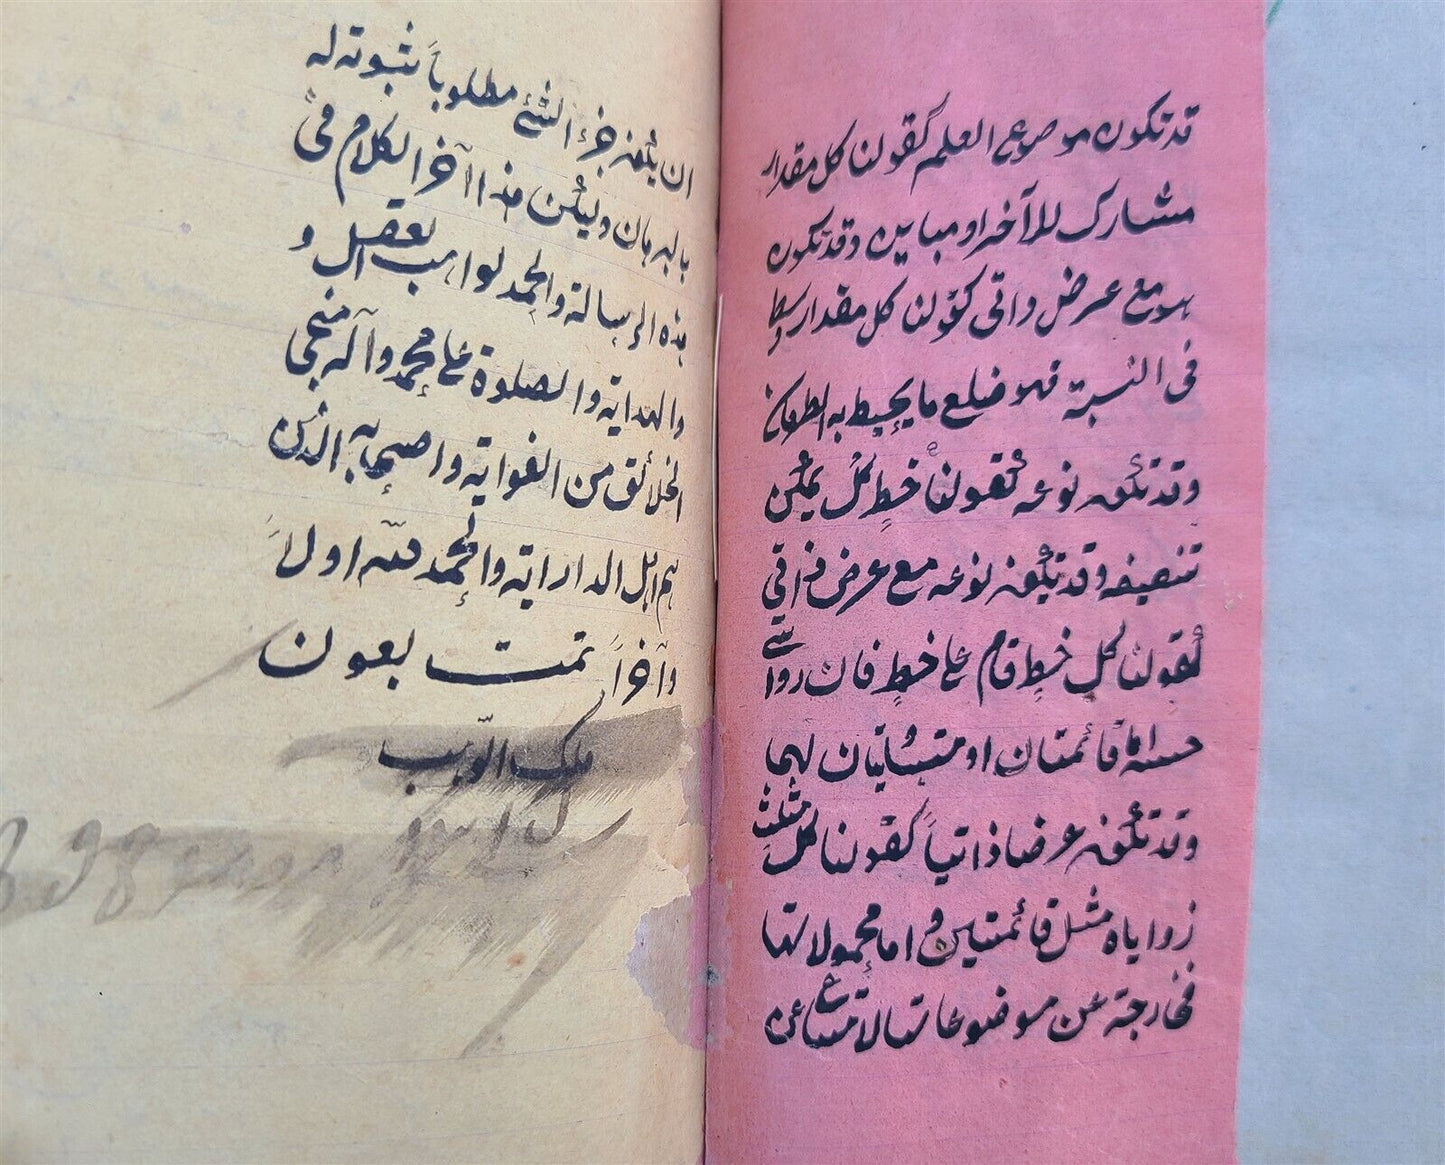 قد تكون موضوع العلم كقولنا كل مقدار
مشارك للآخر او مباين وقد تكون
هو مع عرض ذاتي كقولنا كل مقدار وسط
في النسبة فهو ضلع ما يحيط به الطرفان
وقد تكون نوعه كقولنا كل خط يمكن
تنصيفه وقد تكون نوعه مع عرض ذاتي
كقولنا كل خط قام على خط فان زوايتى
جنبيه اما قائمتان او متساويتان لهما
وقد تكون عرضا ذاتياً كقولنا كل مثلث
زواياه مثل قائمتين واما محمولاتها
فخارجة عن موضوعاتها لامتناع
ان يكون جزء الشئ مطلوباً ثبوته له
بالبرهان وليكن هذا آخر الكلام في
هذه الرسالة والحمد لواهب العقل و
والهداية والصلوة على محمد وآله منجى
الخلائق من الغواية واصحابه الذين
هم اهل الدراية والحمد لله اولاً
وآخراً تمت بعون
ملك الوهب